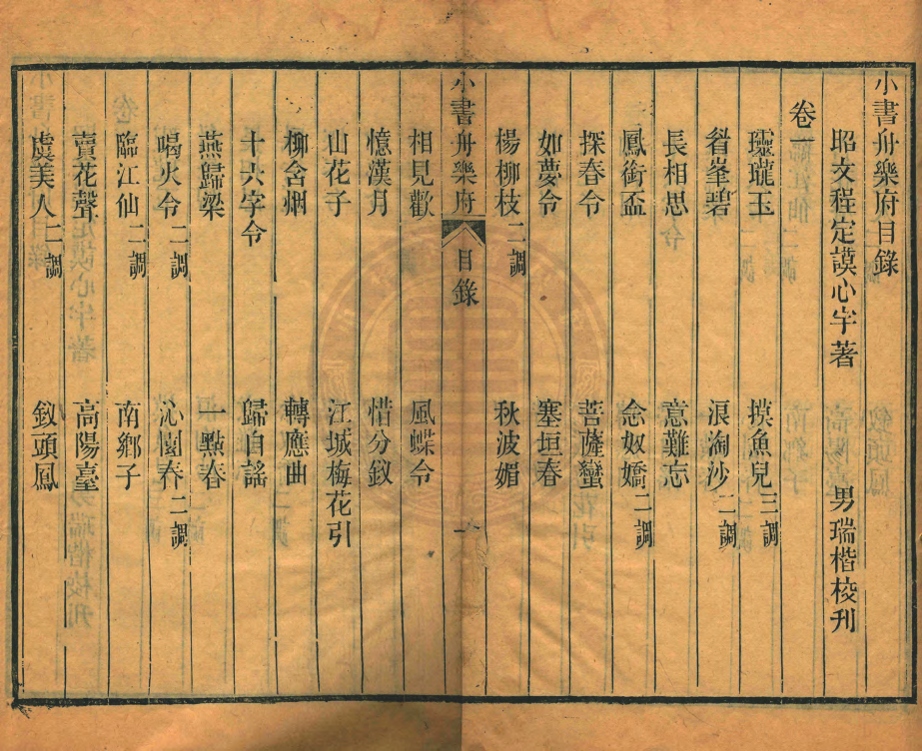 小書舟樂府目錄
昭文程定謨心宇著 男瑞楷校刊
卷一
瓏璁玉 摸魚兒三調
眉峯碧 浪淘沙二調
長相思 意難忘
鳳銜盃 念奴嬌二調
探春令 菩薩蠻
如夢令 塞垣春
楊柳枝二調 秋波媚
小書舟樂府 目錄 一
相見歡 風蝶令
憶漢月 惜分釵
山花子 江城梅花引
柳含烟 轉應曲
十六字令 歸自謠
燕歸梁 一點春
喝火令二調 沁園春二調
臨江仙二調 南鄉子
賣花聲 高陽臺
虞美人二調 釵頭鳳